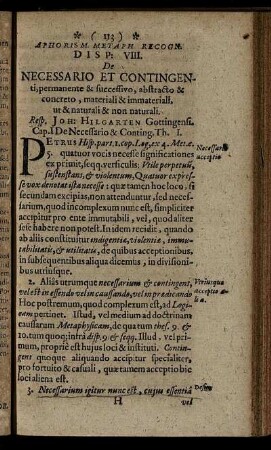 * ( 113 ) *
APHORISM. METAPH RECOGN.
DISP. VIII.
De
NECESSARIO ET CONTINGEN-
ti, permanente & successivo, abstracto &
concreto, materiali & immateriali,
ut & naturali & non naturali.
Resp. JOH: HILGARTEN Gottingensi.
Cap. I De Necessario & Conting. Th. I.
PETRUS Hisp. part. 2. cap. I. ag. ex 4. Metæ.
5. quatuor vocis necesse significationes
exprimit, seqq. verticulis. Utile perpetuũ,
sustentans, & violentum, Quatuor expres-
se vox denotat ista necesse: quæ tamen hoc loco, si
secundam excipias, non attenduntur, sed neces-
sarium, quod incomplexum nunc est, simpliciter
accipitur pro ente immutabili, vel, quod aliter
sese habere non potest. In idem recidit, quando
ab aliis constituitur indigentiæ, violentiæ, immu-
tabilitatis, & utilitatis, de quibus acceptionibus,
in subsequentibus aliqua dicemus, in divisioni-
bus utriusque.
Necessarii
acceptio
2. Alias utrumque necessarium & contingens,
vel est in essendo vel in causando, vel in prædicando
Hoc postremum, quod complexum est, ad Logi-
cam pertinet. Istud, vel medium ad doctrinam
causarum Metaphysicam, de qua tum thes. 9. &
10. tum quoq; infrà disp. 9. & seqq. Illud, vel pri-
mum, propriè est hujus loci & instituti. Contin-
gens quoque aliquando accipitur specialiter,
pro fortuito & casuali, quæ tamen acceptio hic
loci aliena est.
Utriusque
acceptio
3. Necessarium igitur nunc est, cujus essentiâ
Defin:
H
vel